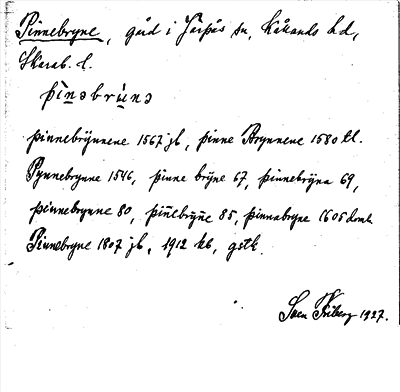 Pinnebryne, gård i Järpås sn, Kållands hd,
Skarab. l.
pìnəbrùnə
pinnebrÿnnene 1567 jb, pinne Brynnene 1580 tl.
Pynnebrynne 1546, pinne brÿne 67, pinnebrÿna 69,
pinnebrynne 80, piñebrÿne 85, pinnabryne 1605 domb
Pinnebryne 1807 jb, 1912 kb, gstk.
Sven Friberg 1927.